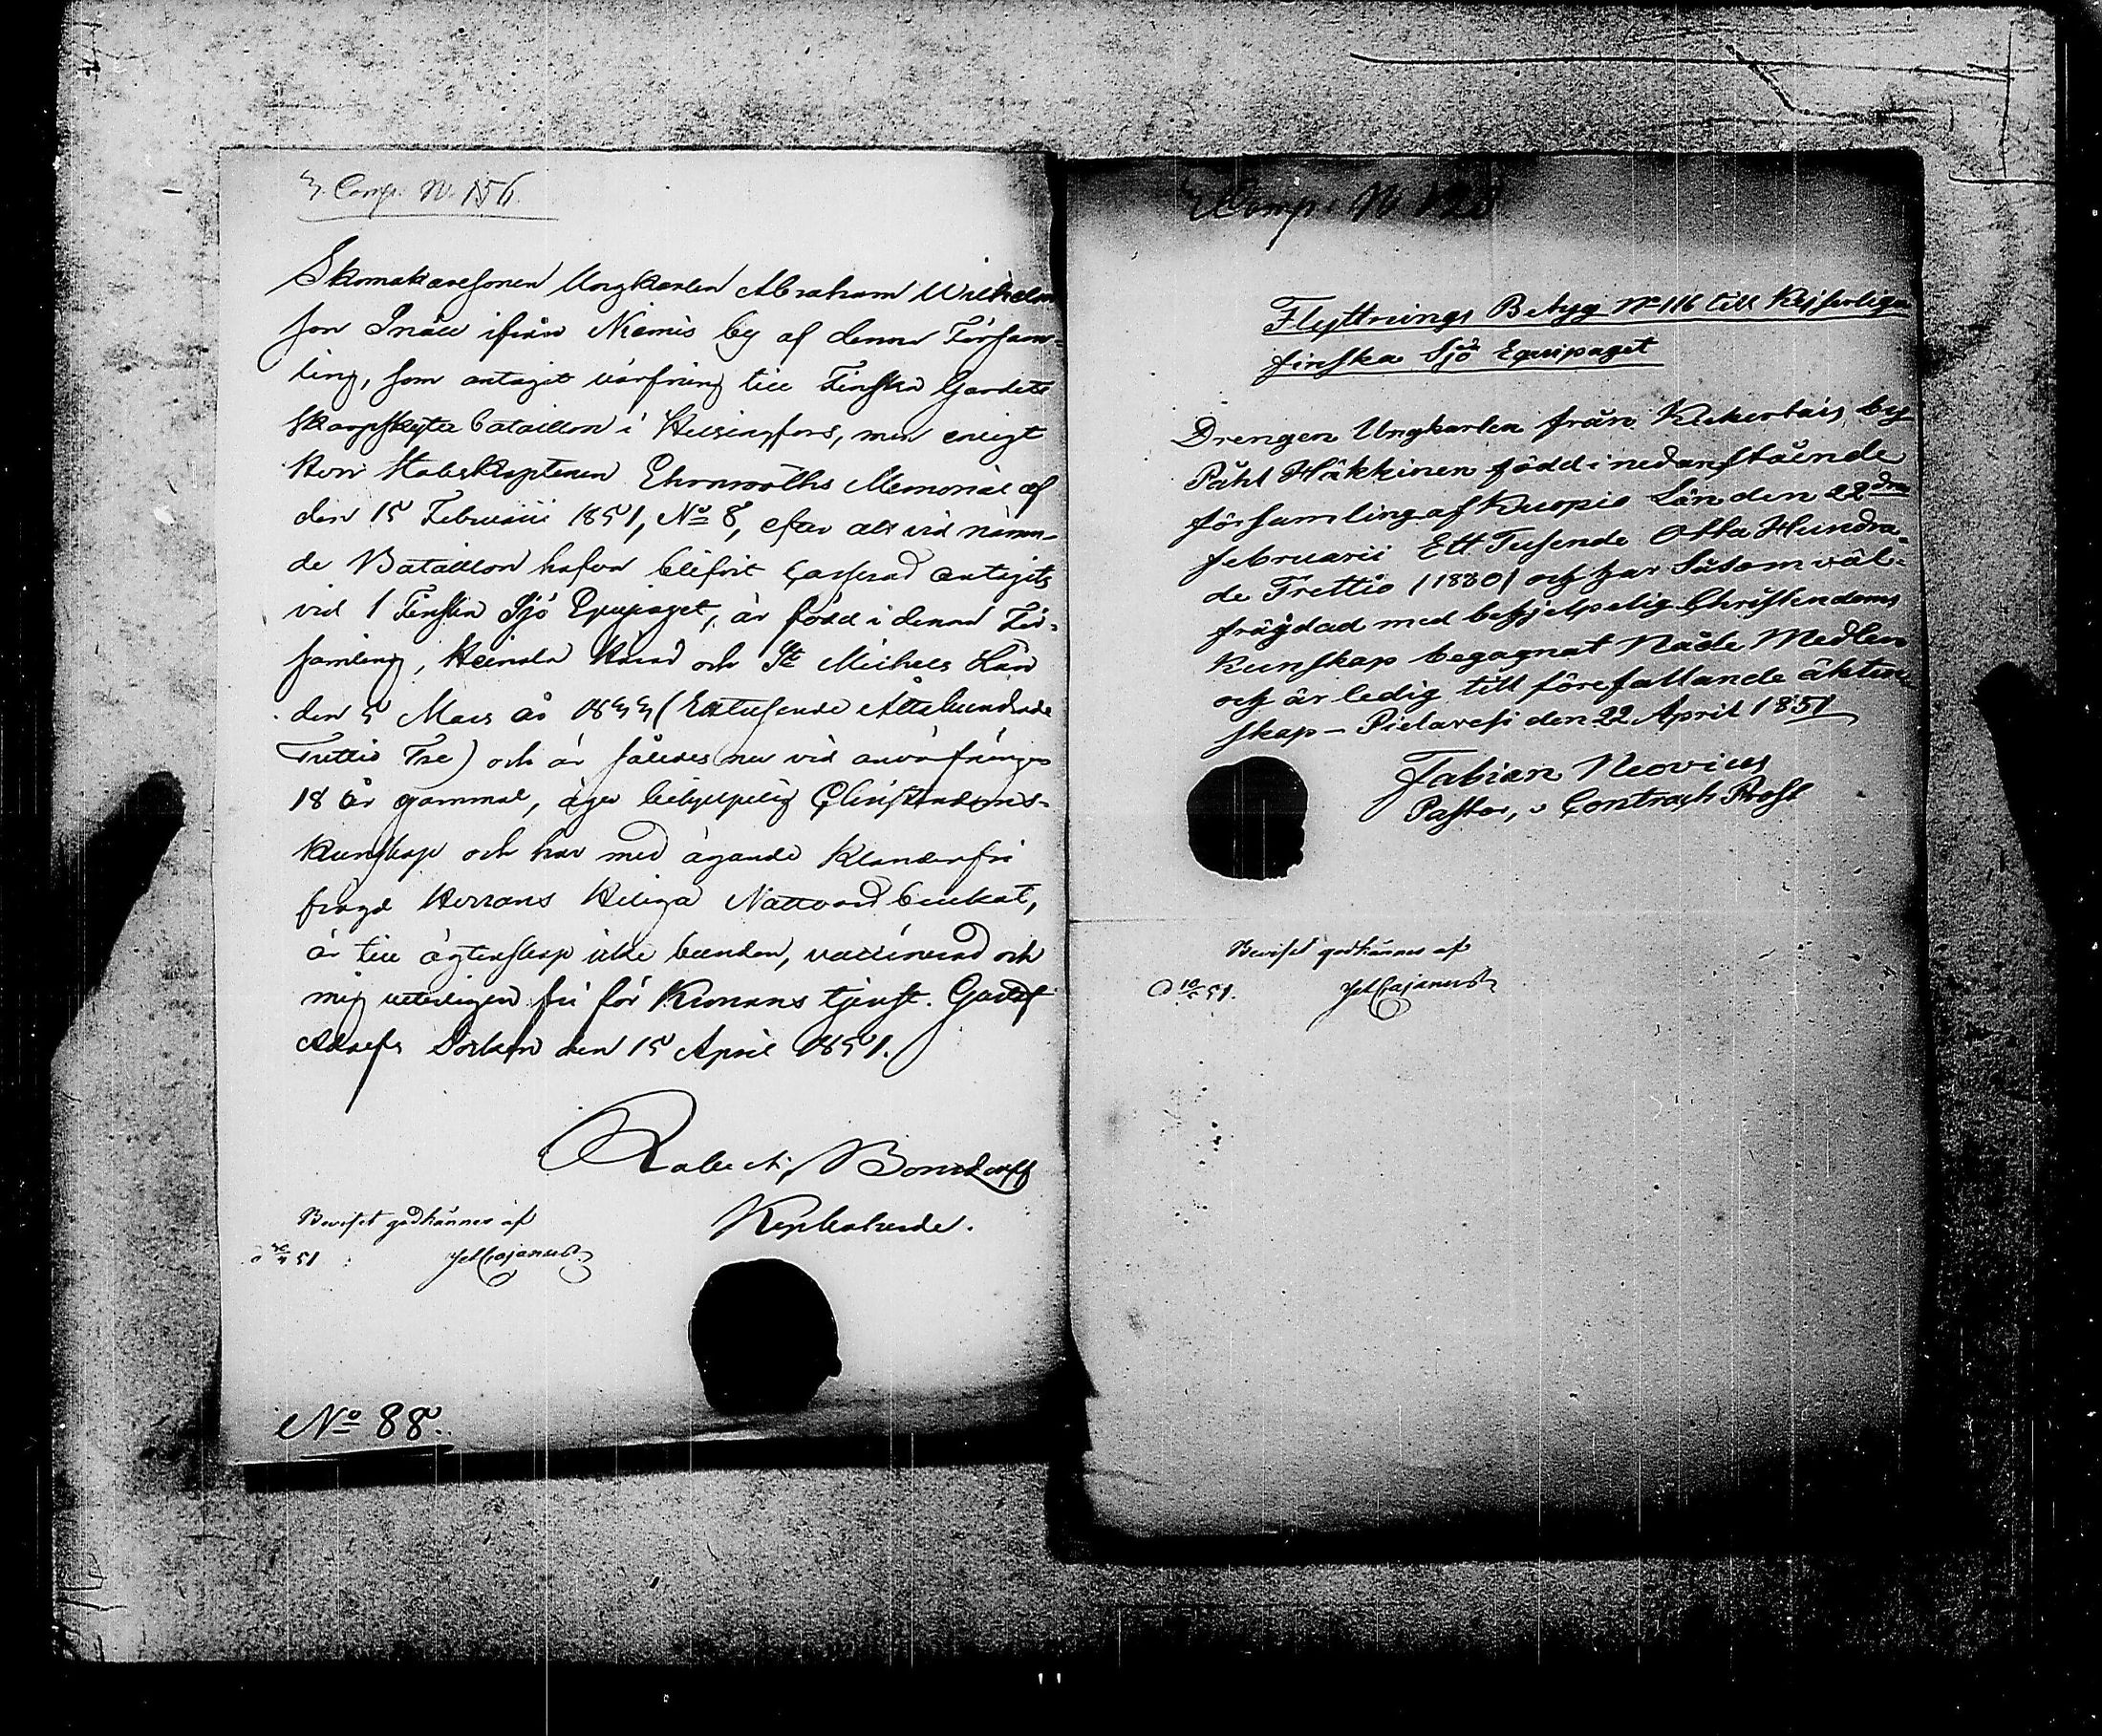 3. Comp. N. 156.
Skomakaresonen Ungkarlen Abraham Wilhelms
son Snäll ifrån Niemis by af denna Församm-
ling, som antagit värfning till Finska Gardets
Skarpskytte bataillon i Helsingfors, men enligt
Herr Stabskaptenen Ehrnrooths Memorial af
den 15 Februarii 1851, No 8, efter att vid nämn-
de Bataillon hafva blifvit casserad antagits
vid 1 Finska Sjö Equipaget, är född i denna För-
samling, Heinola Härad och St Michels Län
den 5 Mars år 1833 (Ettusende Åttahundrade
Trettio Tre) och är således nu vid anvärfningen
18 år gammal, äger behjelpelig Christendoms-
kunskap och har med ägande klanderfri
frägd Herrans Heliga Nattvard brukat,
är till ägtenskap icke bunden, vaccinerad och
mig veterligen fri för Kronans tjenst. Gustaf
Adolfs Socken den 15 April 1851.
Robert Bonsdorff
Kyrkoherde.
Beviset godkännes af
d 30/4 51
Cajanus
No 88.
3 Comp. N 128
Flyttnings Betyg No 116 till Kejserliga
finska Sjö Equipaget
Drengen Ungkarlen från Kukertais by
Påhl Häkkinen född i nedanstående
församling af Kuopio Län den 22dra
februarii Ett Tusende Otta Hundra-
de Trettio (1830) och har såsom väl-
frägdad med behjelpelig Christendoms
Kunskap begagnat Nåde Medlen
och är ledig till förefallande äkten-
skap – Pielavesi den 22 April 1851
Fabian Neovius
Pastor, v Contracts Prost
Beviset godkännes af
d 10/5 51.
Cajanus